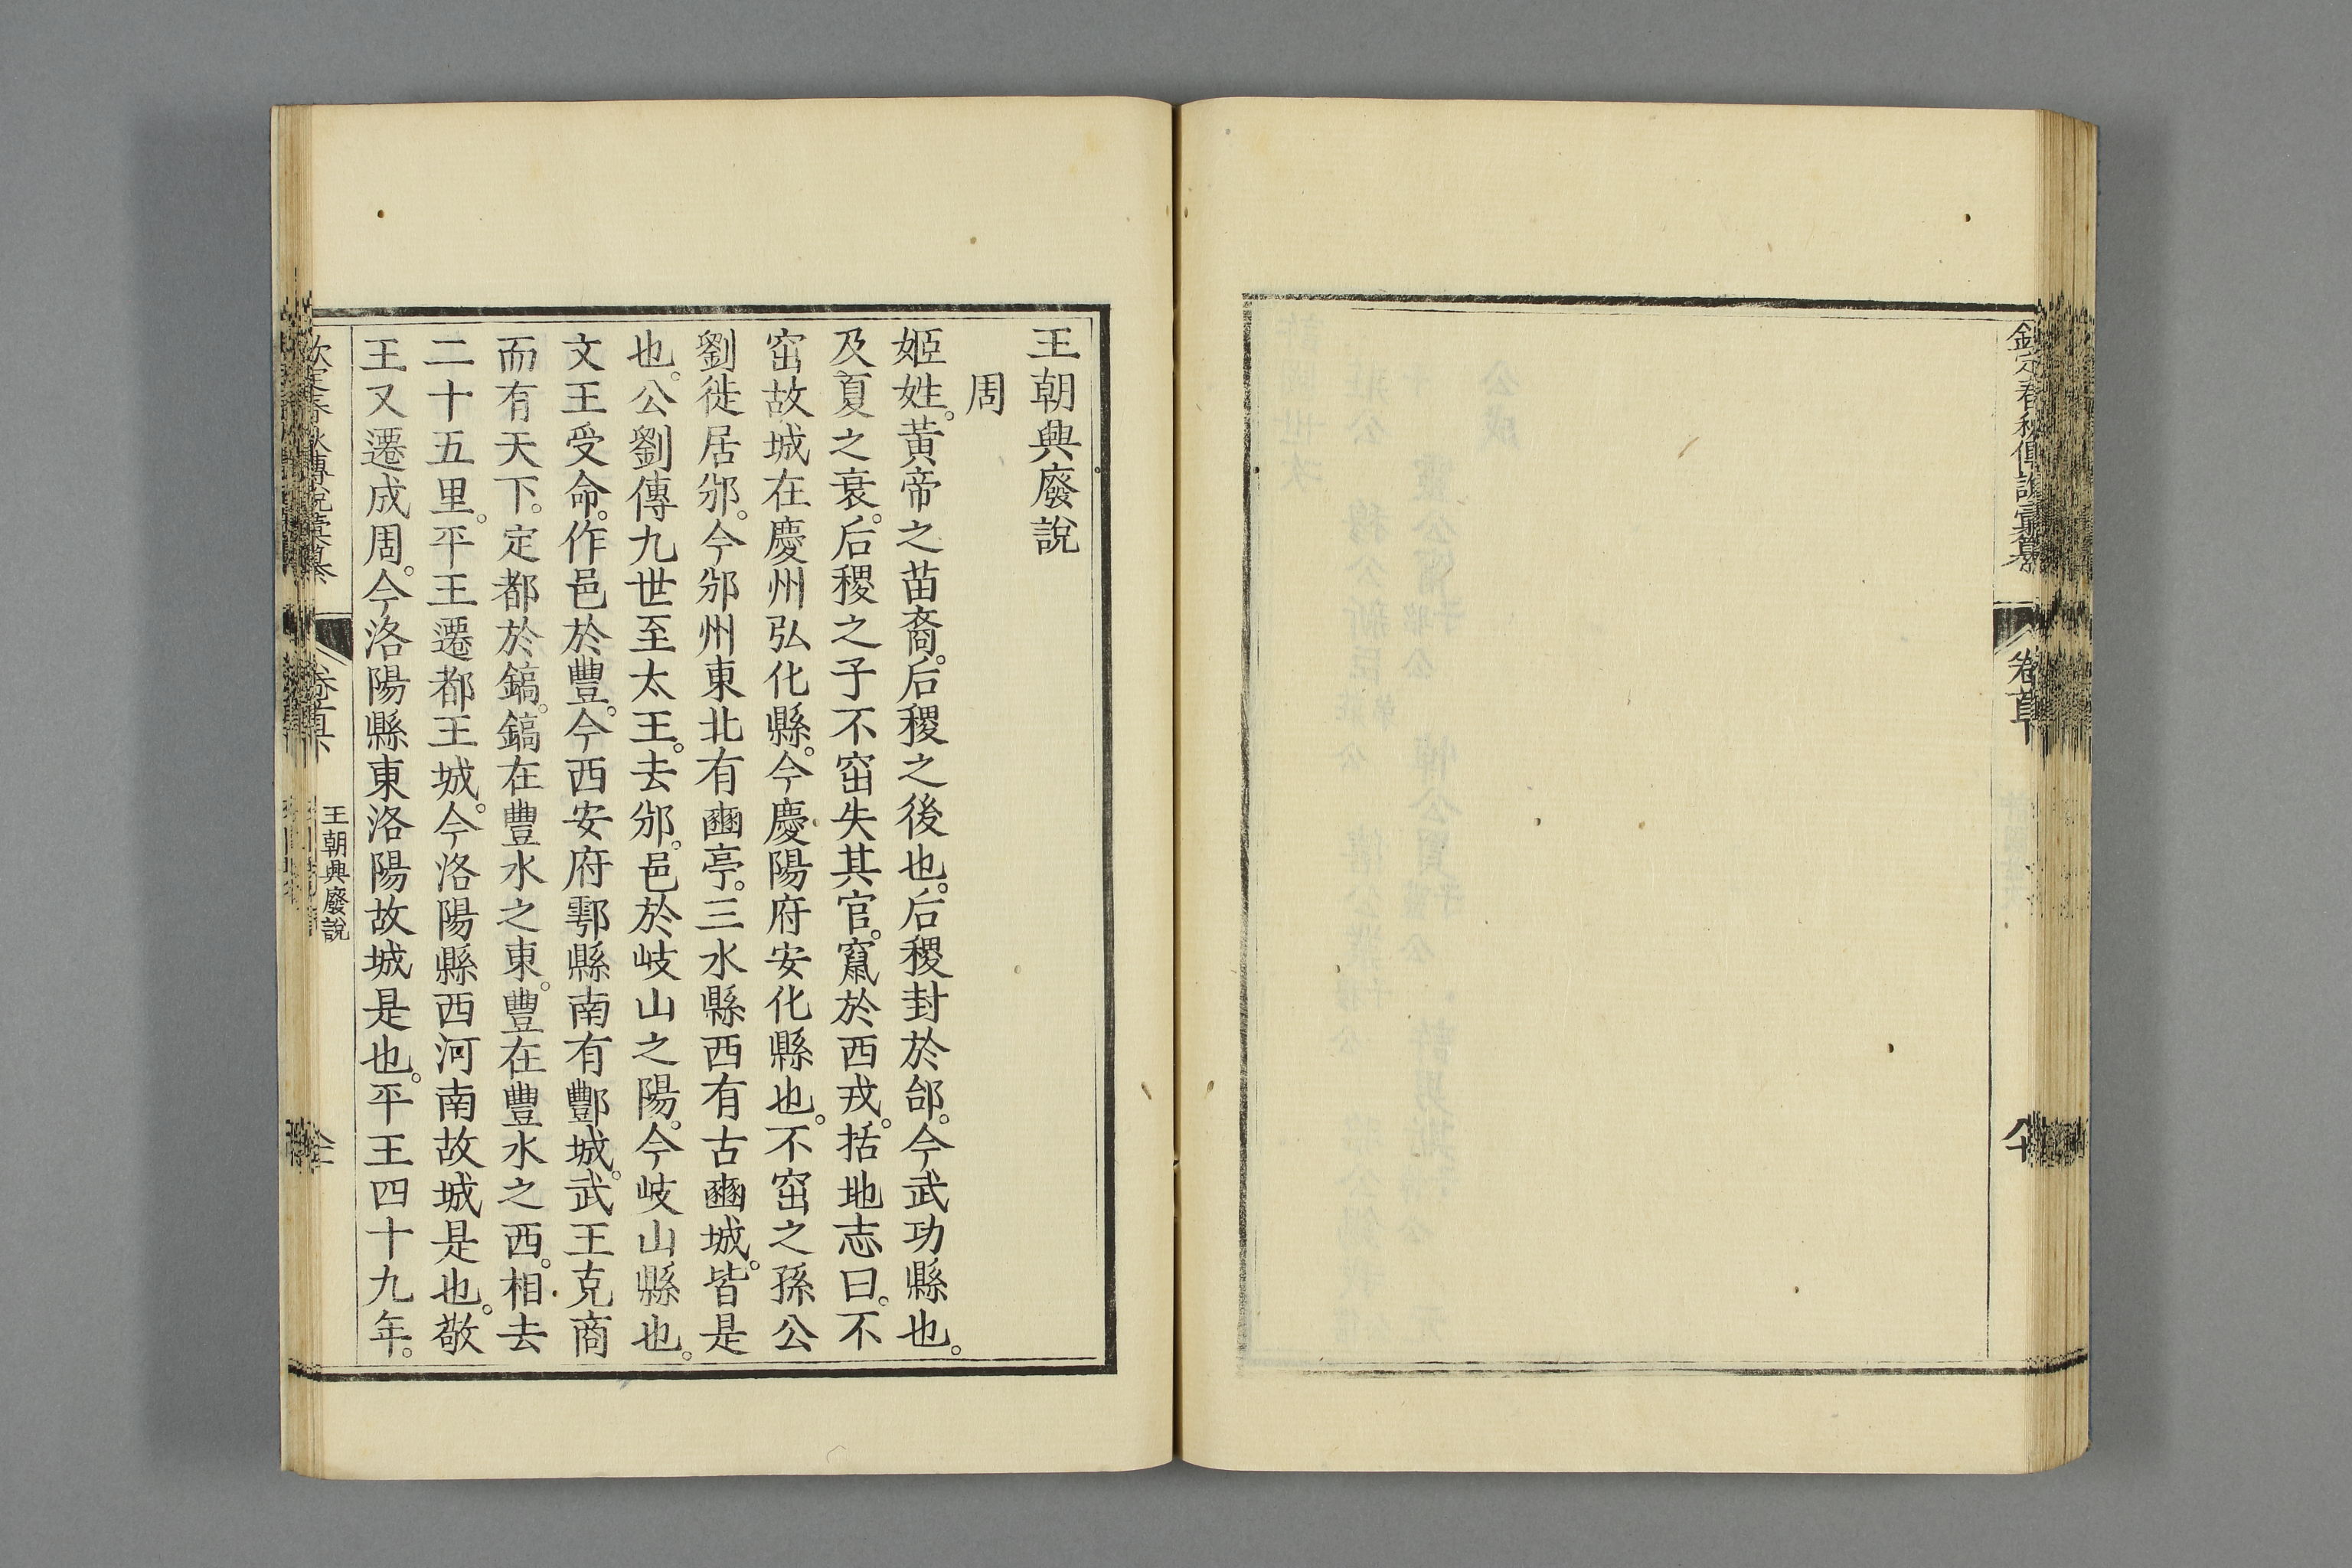 王朝興廢說
周
姬姓。黃帝之苗裔。后稷之後也。后稷封於邰。今武功縣也。
及夏之衰。后稷之子不窋失其官。竄於西戎。括地志曰。不
窋故城在慶州弘化縣。今慶陽府安化縣也。不窋之孫公
劉徙居邠。今邠州東北有豳亭。三水縣西有古豳城。皆是
也。公劉傳九世至太王。去邠。邑於岐山之陽。今岐山縣也。
文王受命。作邑於豐。今西安府鄠縣南有酆城。武王克商
而有天下。定都於鎬。鎬在豐水之東。豐在豐水之西。相去
二十五里。平王遷都王城。今洛陽縣西河南故城是也。敬
王又遷成周。今洛陽縣東洛陽故城是也。平王四十九年。
王朝興廢說
卷首下